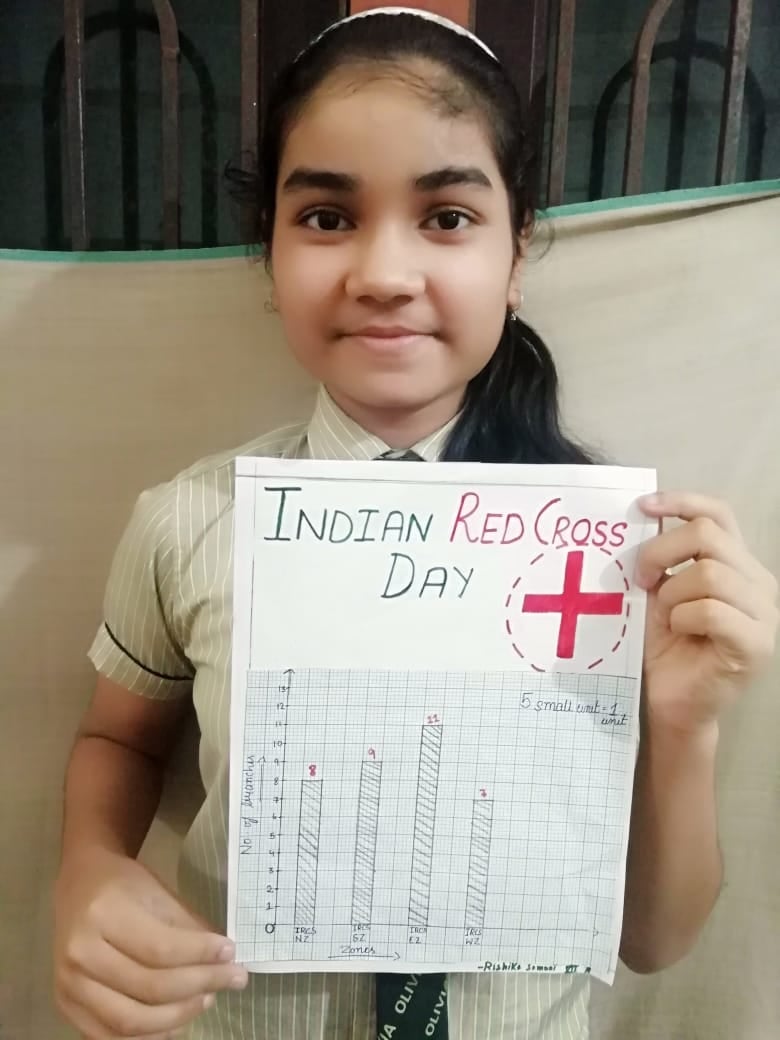 INDIAN RED CROSS
DAY
5 small unit = 1
unit
No. of branches
13
12
11
10
9
8
7
6
5
4
3
2
1
0
8
9
11
7
IRCS
NZ
IRCS
SZ
IRCS
EZ
IRCS
WZ
Zones
-Rishika Somani VII A
OLIVIA
OLIVIA